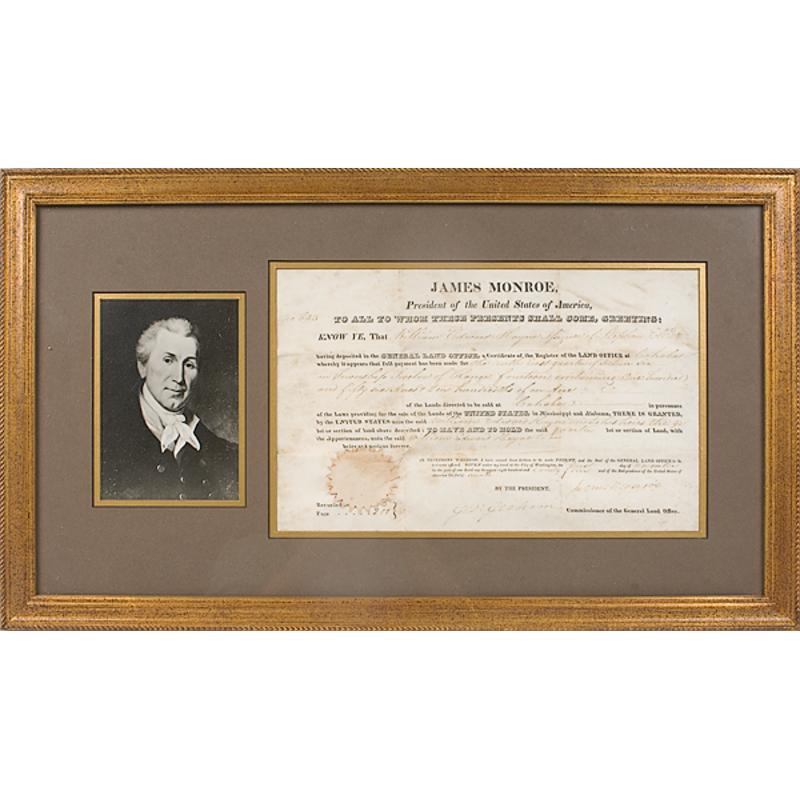 JAMES MONROE,
President of the United States of America,
TO ALL TO WHOM THESE PRESENTS SHALL COME, GREETING:
KNOW YE, That William Edward Hayne
having deposited in the GENERAL LAND OFFICE, a Certificate of the Register of the LAND OFFICE at Cahaba
whereby it appears that full payment has been made for the
in Township twelve of Range fourteen containing One hundred
and fifty hundredths of an Acre
of the Lands directed to be sold at Cahaba in pursuance
of the Laws providing for the sale of the Lands of the UNITED STATES, in Mississippi and Alabama, THERE IS GRANTED,
by the UNITED STATES unto the said William Edward Hayne and to his heirs the
lot or section of land above described: TO HAVE AND TO HOLD the said quarter lot or section of Land, with
the Appurtenances, unto the said William Edward Hayne his
heirs and assigns forever.
IN TESTIMONY WHEREOF, I have caused these Letters to be made PATENT, and the Seal of the GENERAL LAND OFFICE to be
hereunto affixed. GIVEN under my hand at the City of Washington, the first day of
in the year of our Lord one thousand eight hundred and twenty four and of the Independence of the United States of
America the forty
BY THE PRESIDENT, James Monroe
Recorded
Page
Geo. Graham Commissioner of the General Land Office.